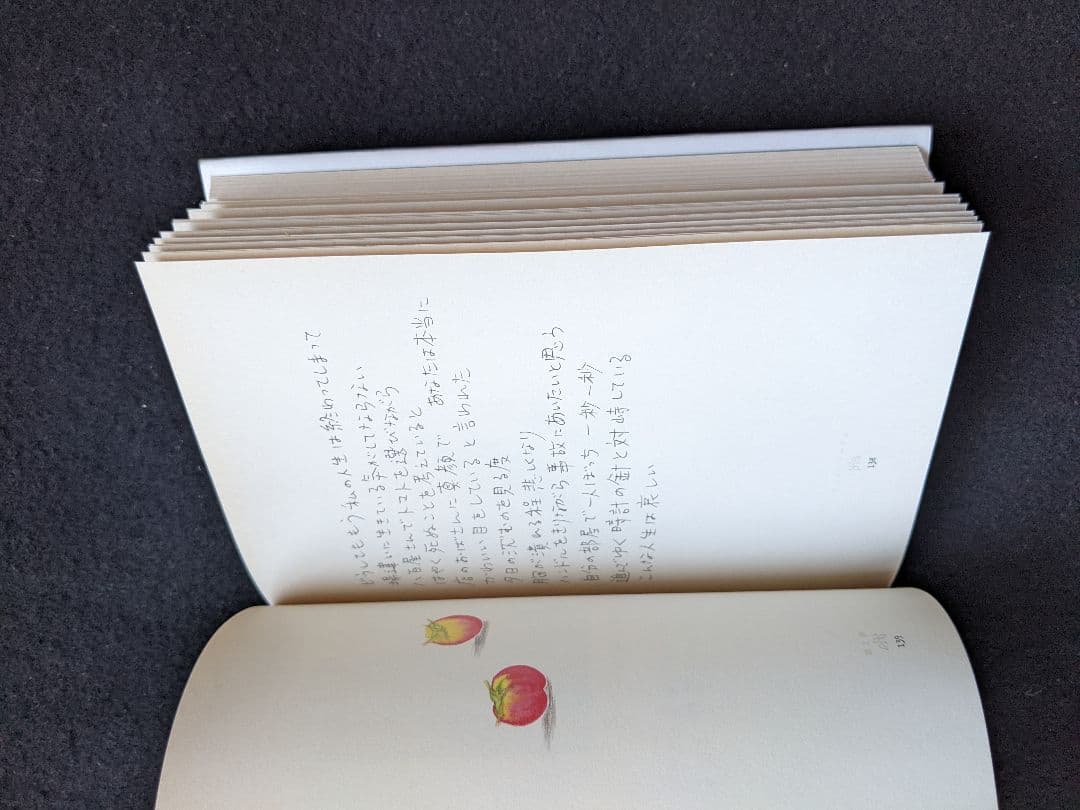 どうしてももう私の人生は終わってしまって
場違いに生きている気がしてならない
八百屋さんでトマトを選びながら
はやく死ぬことを考えていると
店のおばさんに真顔で あなたは本当に
かわいい目をしている と言われた
夕日の沈むのを見る度
胸が潰れる程悲しくなり
ハンドルをきりながら事故にあいたいと思う
自分の部屋で一人ぼっち 一秒一秒
進んでゆく時計の針と対峙している
こんな人生は哀しい
138
139